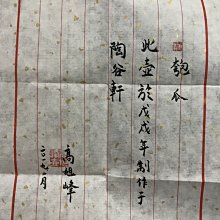 匏瓜
此壺於戊戌年制作于
陶谷軒
高旭峰
二〇一九年一月